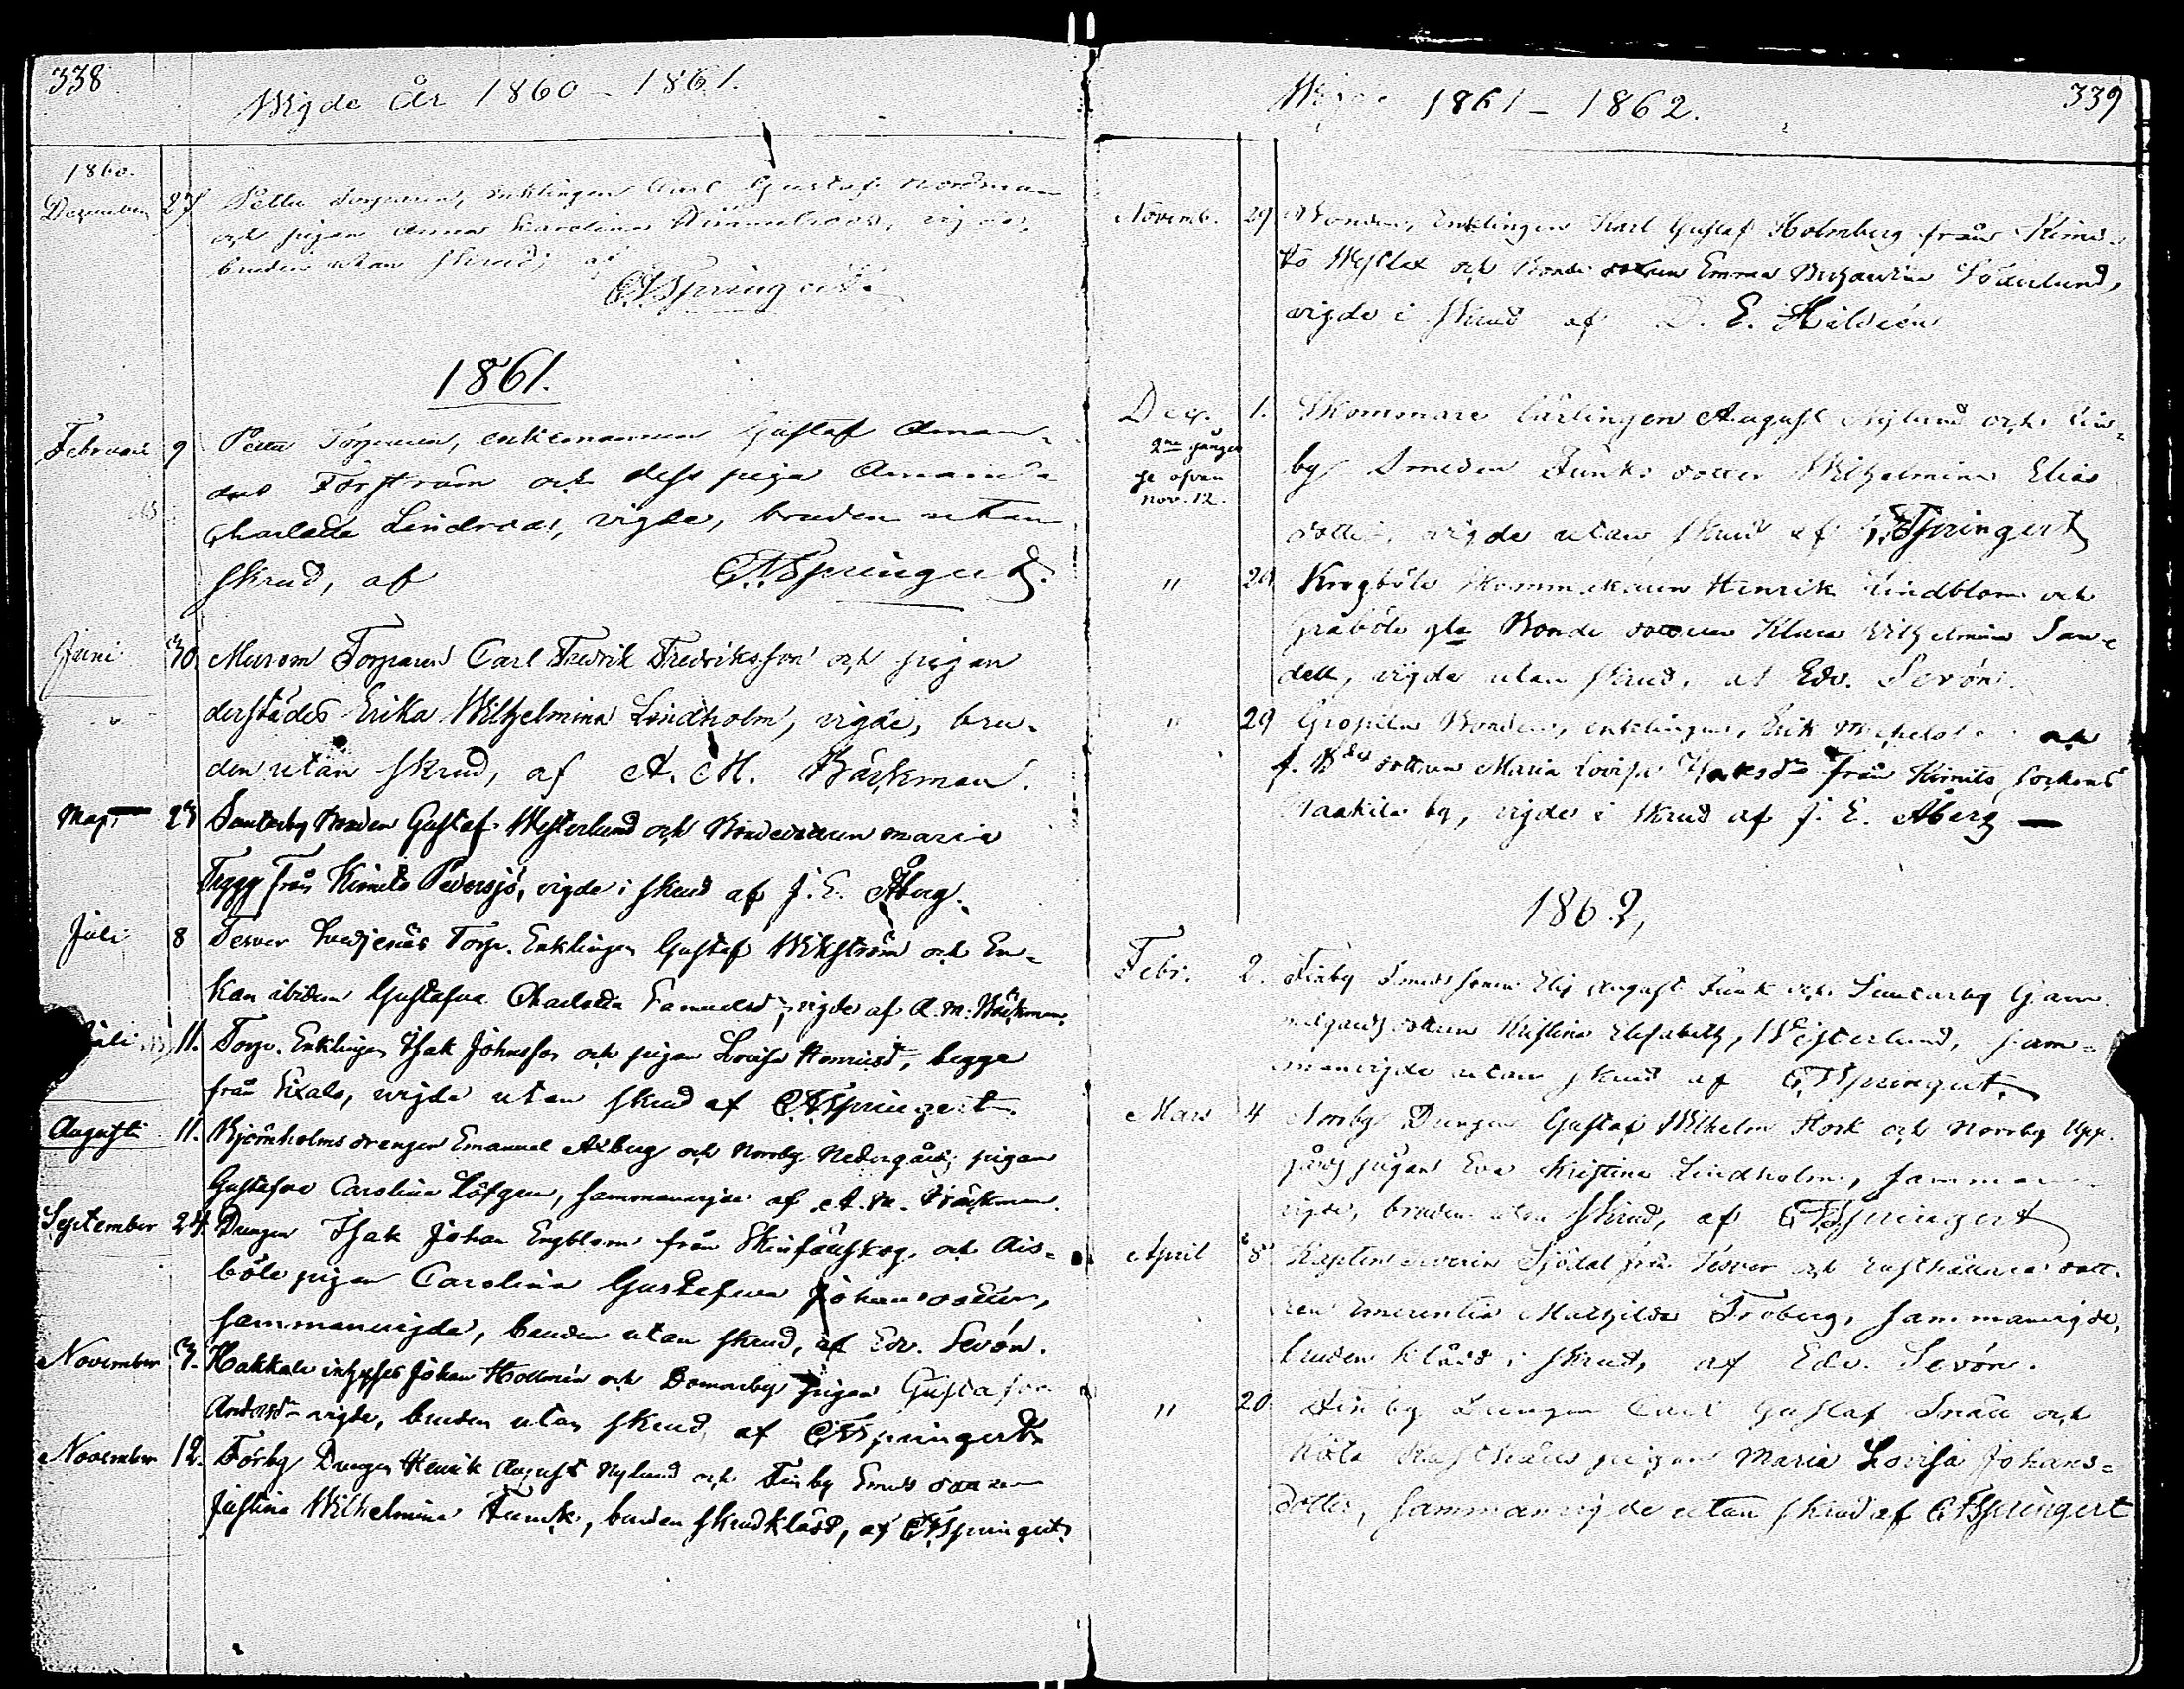 338
Wigde år 1860 - 1861.
1860.
Dezember 27 Pettu Torparen, enklingen Carl Gustaf Nordman
och pigan Anna Karolina Himmelroos, vigdes,
bruden utan skrud, af
Springert.
1861.
Februari 9 Pettu Torparen, enkemannen Gustaf Aman-
dus Forsström och dess piga Amanda
Charlotta Lindroos, vigde, bruden utan
skrud, af Springert.
Juni 30 Murom Torparen Carl Fredrik Fredriksson och pigan
derstädes Erika Wilhelmina Lindholm, vigde, bru-
den utan skrud, af A. M. Bäckman.
Maj 23 bonden Gustaf Westerlund och Bondedottren Maria
från Kimito Pedersjö, vigde i skrud af J. E. Åberg.
Juli 8 Tesvor Torp. Enklingen Gustaf Wikström och En-
kan ibidem Gustafva Charlotta Samuelsdr, vigde af A. M. Bäckman.
Juli 11. Torp. Enklingen Isak Johnsson och pigan Lovisa Henricsdr, begge
från Kixalo, vigde utan skrud af Springert.
Augusti 11. Björnholms drengen Emanuel Axberg och Norrby Nedergårds pigan
Gustafva Carolina Löfgren, sammanvigde af A. M. Bäckman.
September 24. Drengen Isak Johan Engblom från och Ais-
böle pigan Carolina Gustafva Johansdotter,
sammanvigde, bruden utan skrud, af Edv. Sevón.
November 3. Hakkala inhyses Johan Hollmén och pigan Gustafva
Andersdr vigde, bruden utan skrud af Springert
November 12. Förby Drengen Henrik August Nylund och Finby Smeds dottren
Justina Wilhelmina Funck, bruden skrudklädd, af Springert.
339
Wigde 1861 - 1862.
Novemb. 29 Bonden, Enklingen Karl Gustaf Holmberg från Kimi-
to Westlax och Bonde dottren Emma Söderlund,
vigde i skrud af D. E. Hildeón
Dec. 1. Skommare lärlingen August Nylund och Fin-
2ne gången
se ofvan
nov. 12.
by Smeden Funks dotter Wilhelmina Elias
dotter, vigde utan skrud af Springert
" 29 Krogböle Skommakaren Henrik Lindblom och
Gråböle gla Bonde dottren Klara Wilhelmina San-
dell, vigde utan skrud, af Edv. Sevón.
" 29 Bonden, enklingen, Erik och
f. Bde dottren Maria Lovisa från Kimito Sockens
by, vigde i skrud af J. E. Åberg
1862,
Febr. 2. Finby Smedssonen August Funk och Gam-
melgårds dottren Kristina Elisabeth, Westerlund, sam-
manvigde utan skrud af Springert.
Mars 4 Norrby Drengen Gustaf Wilhelm Stork och Norrby Upp-
gårds pigan Eva Kristina Lindholm, samman-
vigde, bruden utan skrud, af Springert
April 8 Kapten Severin Sjödal från Tesvor och rusthållare dott-
ren Emerentia Mathilda Froberg, sammanvigde,
bruden klädd i skrud, af Edv. Sevón.
" 20 Finby Drengen Carl Gustaf Snäll och
pigan Maria Lovisa Johans-
dotter, sammanvigde utan skrud af Springert